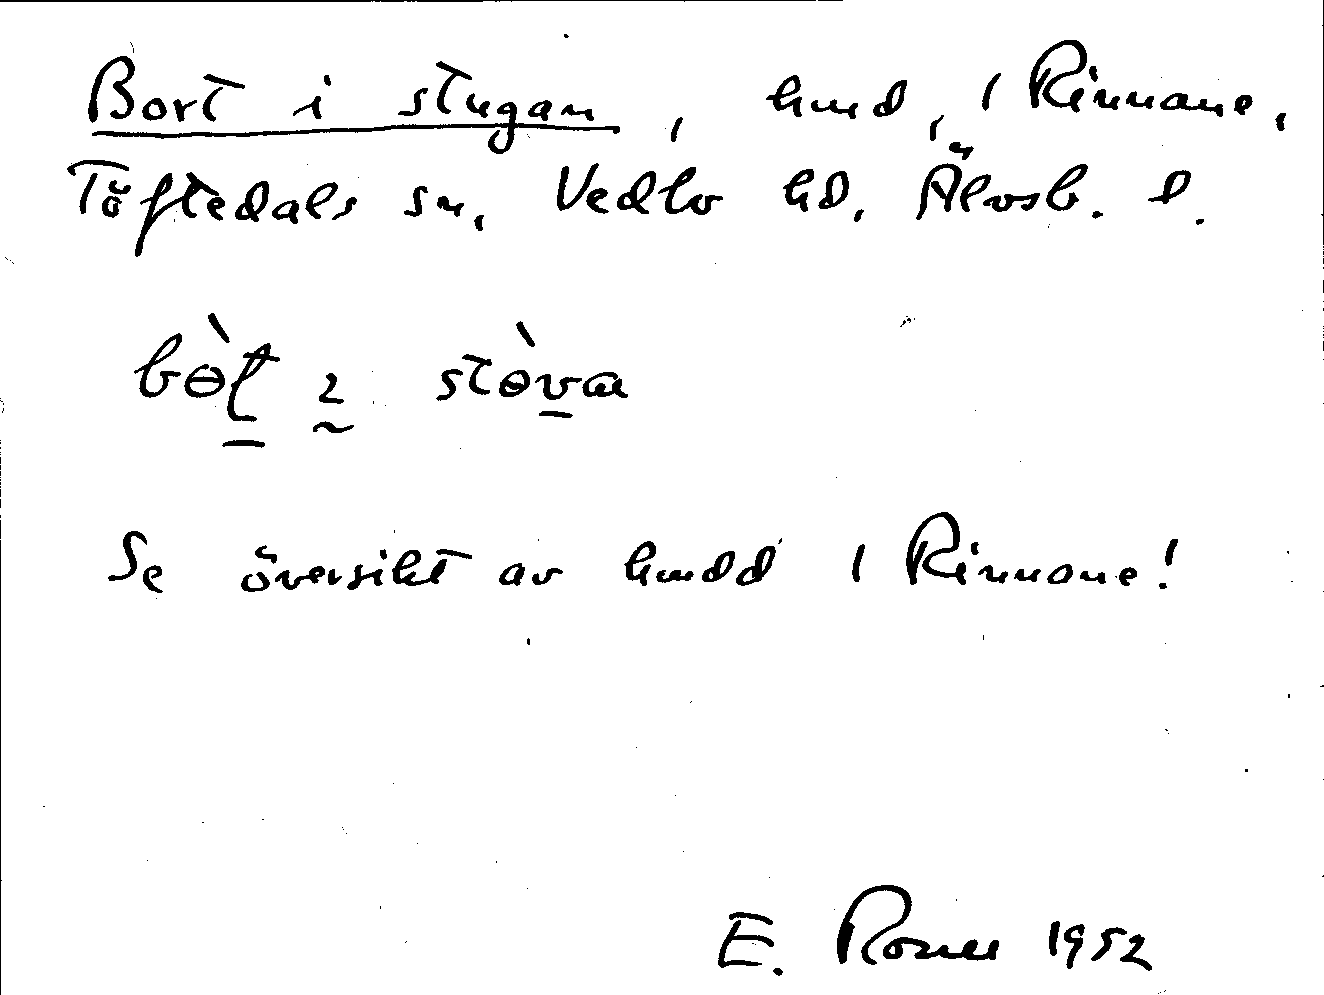 Bort i stugan, hmd, 1 Rinnane,
Töftedals sn, Vedbo hd. Älvsb. l.
bɵ̀t ı stɵ̀va
Se översikt av hmdd 1 Rinnane!
E. Rosell 1952